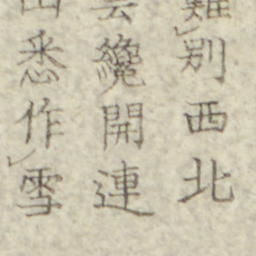 難別西北
雲纔開連
山悉作雪